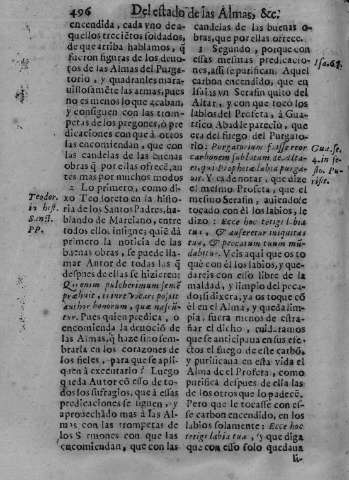 496 Del estado de las Almas, &c.
encendida, cada vno de a-
quellos trecietos soldados,
de que arriba hablamos, q̃
fueron figuras de los deuo-
tos de las Almas del Purga-
torio, y quadranles mara-
uillosamẽte las armas, pues
no es menos lo que acaban,
y consiguen con las trom-
petas de los pregones, ò pre
dicaciones con que à otros
las encomiendan, que con
las candelas de las buenas
obras q̃ por ellas ofrecẽ, an-
tes mas por muchos modos
1 Lo primero, como di-
xo Teodoreto en la histo-
ria de los Santos Padres, ha-
blando de Marciano, entre
todos ellos, insigne; quiẽ dà
primero la noticia de las
buenas obras, se puede lla-
mar Autor de todas las q̃
despues de ellas se hizieren:
Quienim pulcherimum semẽ
præbuit, is iure vocari possit
author bonorum, quæ nascũ-
tur. Pues quien predica, o
encomienda la deuociõ de
las Almas, q̃ haze sino sem-
brarla en los corazones de
los fieles, para que se apli-
quen à executarlo? Luego
queda Autor cõ esso de to-
dos los sufragios, que à essas
predicaciones se siguen, y
aprouechado mas à las Al-
mas con las trompetas de
los Sermones con que las
encomiendan, que con las
Teodor.
in hist.
Sanct.
PP.
candelas de las buenas o-
bras, que por ellas ofrece.
2 Segundo, porque con
essas mesmas predicacio-
nes, assi se purifican. Aquel
carbon encendido, que en
Isaias vn Serafin quito del
Altar, y con que tocò los
labios del Profeta, à Gua-
trico Abad le pareciò, que
era del fuego del Purgato-
rio: Purgatorium fuisse reor
carbonem sublatum de Alta-
ri, qui Prophetæ labia purga-
uit. Y es de notar, dize el
mesmo Profeta, que el
mesmo Serafin, auiendole
tocado con èl los labios, le
dixo: Ecce hoc tetigi labia
tua, & auferetur iniquitas
tua, & peccatum tuum mũ-
dabitur. Veis aqui que os to
què con èl los labios, y que-
dareis con esso libre de la
maldad, y limpio del peca-
do; si dixera, ya os toquè cõ
èl en el Alma, y queda lim-
pia, fuera menos de estra-
ñar el dicho, cuidaramos
que se anticipaba en sus efe-
ctos el fuego de esse carbõ,
y purificaua en esta vida el
Alma de el Profeta, como
purifica despues de ella las
de los otros que lo padecẽ.
Pero que le tocasse con es-
se carbon encendido, en los
labios solamente: Ecce hoc
tetigi labia tua, y que diga
que con esso solo quedaua
li-
Isa. 6.
Pu-